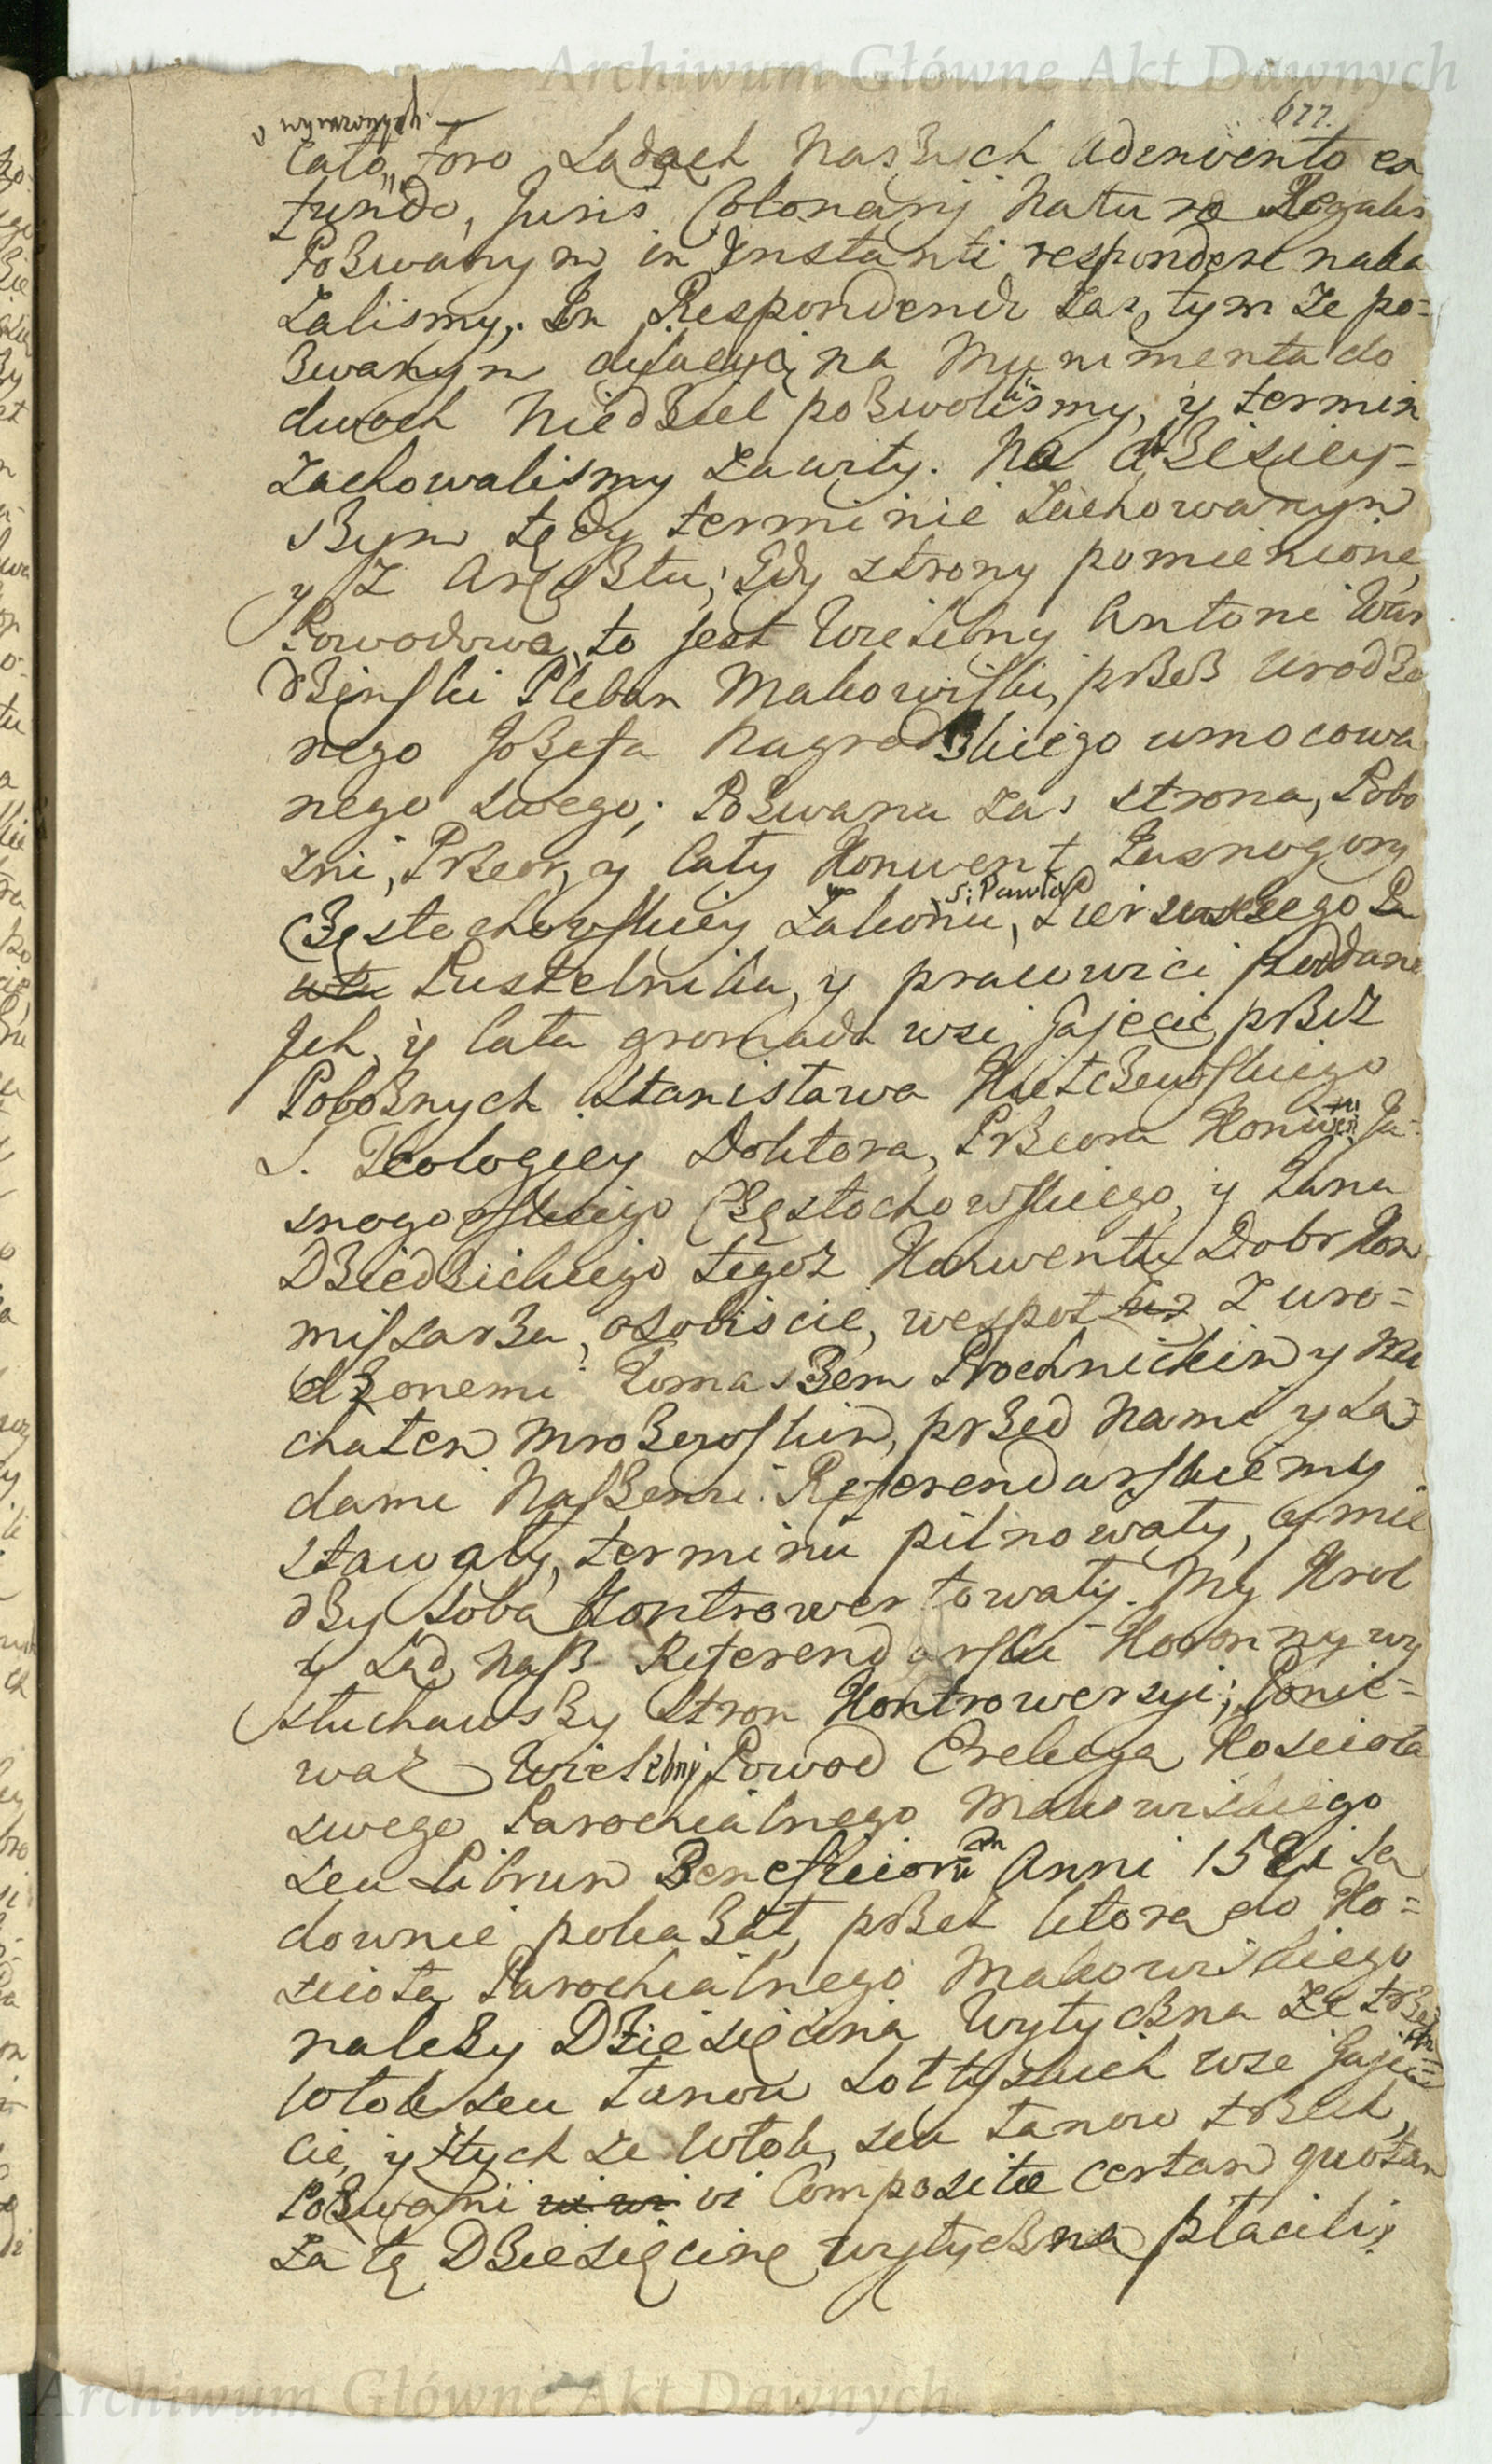 Archiwum Główne Akt Dawnych
677.
cato, foro Sądach Naszych adinvento ex
fundo, Juris Colonarij Natura Regalis
Pozwanym in Instanti respondere naka
zalismy. In Respondendi zas, tym ze po=
zwanym dylacyą na Munimenta do
dwoch Niedziel pozwolilismy, y termin
zachowalismy zawity. Na dzisiey=
szym tedy terminie zachowanym
y z Aręsztu, Gdy strony pomienione,
Powodowa, to jest Wielebny Antoni War
dzęnski Pleban Makowiski, przez urodzo
nego Jozefa Nagrodzkiego umocowa
nego swego; Pozwana zas strona, Pobo
zni, Przeor, y cały Konwent Jasnogory
S: Pawła
Częstochowskiey Zakonu, Pierwszego Pa
wła Pustelnika, y pracowici poddani
Jch, y cała gromada wsi Gajęcic, przez
Pobożnych Stanisława Kiełczewskiego
S. Teologiey Doktora, Przeora Konwentu Ja=
snogorskiego Częstochowskiego, y Jana
Dziedzickiego tegoz Konwentu Dobr Kom
missarza, osobiscie, wespoł z uro=
dzonemi Tomaszem Prochnickim y Mi
chałem Mrozewskim, przed Nami y Są=
dami Naszemi Referendarskiemy
stawały, terminu pilnowały, y mię
dzy sobą Kontrowertowały. My Krol
y Sąd Nasz Referendarski Koronny wy
słuchawszy Stron Kontrowersyi; Ponie=
waz Wielebny Powod Erekcyą Koscioła
swego Parochialnego Makowiskiego
seu Librum Beneficiorum Anni 1521 Są
downie pokazał, przez ktorą do Ko=
scioła Parochialnego Makowiskiego
nalezy Dziesięcina Wytyczna ze trzech
Włok seu Łanow Sołtyskich wsi Gaję=
cic, y z tych ze Włok, seu Łanow trzech,
Pozwani vi Compositae certam quotam
za tę Dziesięcinę wytyczną płacili;
Archiwum Główne Akt Dawnych